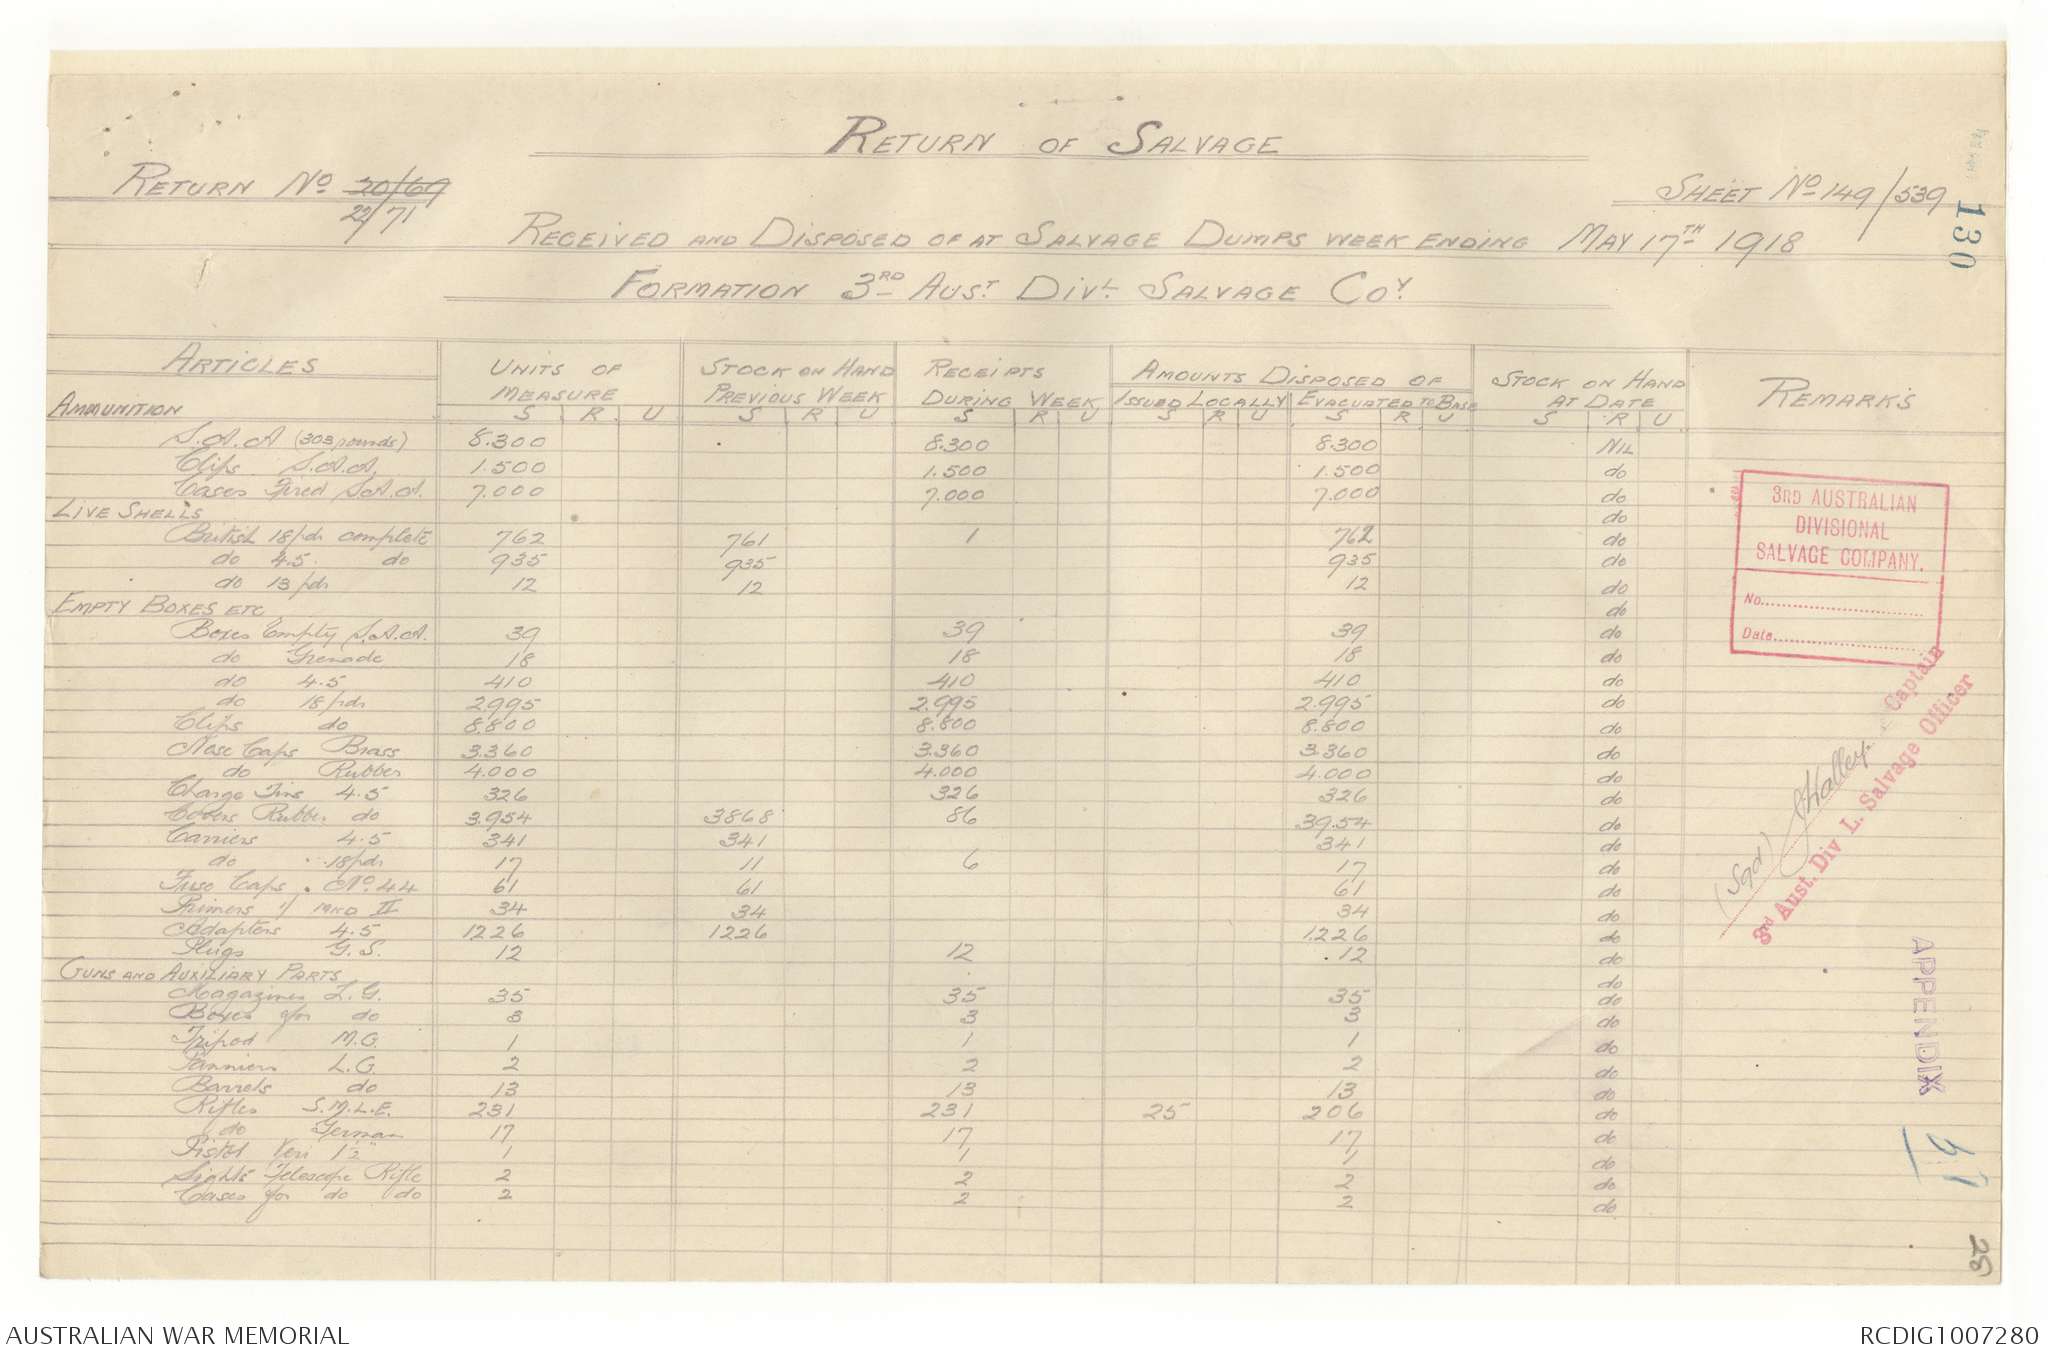 RETURN OF SALVAGE
RETURN No 20/69
22/71
SHEET No 149/539
130
RECEIVED AND DISPOSED OF AT SALVAGE DUMPS WEEK ENDING MAY 17TH 1918
FORMATION 3RD AUST. DIVL. SALVAGE COY.
ARTICLES UNITS OF MEASURE STOCK ON HAND PREVIOUS WEEK RECEIPTS DURING WEEK AMOUNTS DISPOSED OF STOCK ON HAND AT DATE REMARKS
ISSUED LOCALLY EVACUATED TO BASE
AMMUNITION S R U S R U S R U S R U S R U S R U
S.A.A (303 rounds) 8.300 8.300 8.300 NIL
Clips S.A.A. 1.500 1.500 1.500 do
Cases Fired S.A.A. 7.000 7.000 7.000 do
LIVE SHELLS do
British 18/pdr complete 762 761 1 762 do
do 4.5 do 935 935 935 do
do 13/pdr 12 12 12 do
EMPTY BOXES ETC do
Boxes Empty S.A.A. 39 39 39 do
do Grenade 18 18 18 do
do 4.5 410 410 410 do
do 18/pdr 2995 2.995 2.995 do
Clips do 8.800 8.800 8.800 do
Nose Caps Brass 3.360 3.360 3.360 do
do Rubber 4.000 4.000 4.000 do
Charge Tins 4.5 326 326 326 do
Covers Rubber do 3.954 3868 86 39.54 do
Carriers 4.5 341 341 341 do
do 18/pdr 17 11 6 17 do
Fuse Caps No. 44 61 61 61 do
Primers 1/ MKD II 34 34 34 do
Adapters 4.5 1226 1226 1.226 do
Plugs G.S. 12 12 12 do
GUNS AND AUXILIARY PARTS do
Magazines L.G. 35 35 35 do
Boxes for do 3 3 3 do
Tripod M.G. 1 1 1 do
Panniers L.G. 2 2 2 do
Barrels do 13 13 13 do
Rifles S.M.L.E. 231 231 25 206 do
do German 17 17 17 do
Pistol Veri 1½" 1 1 1 do
Sights Telescope Rifle 2 2 2 do
Cases for do do 2 2 2 do
3RD AUSTRALIAN
DIVISIONAL
SALVAGE COMPANY.
No.
Date
(Sgd) Halley Captain
3rd Aust. Div L. Salvage Officer
APPENDIX
AUSTRALIAN WAR MEMORIAL
RCDIG1007280